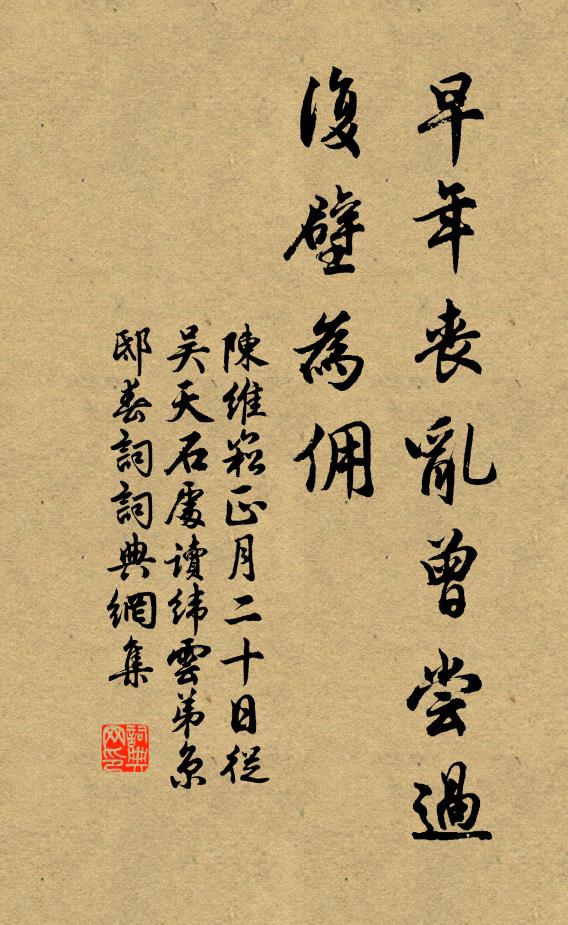 早年喪亂曾嘗過
復壁為傭
陳維崧正月二十日從
吴天石處讀緯雲弟京
邸春詞詞典網集
詞典网印